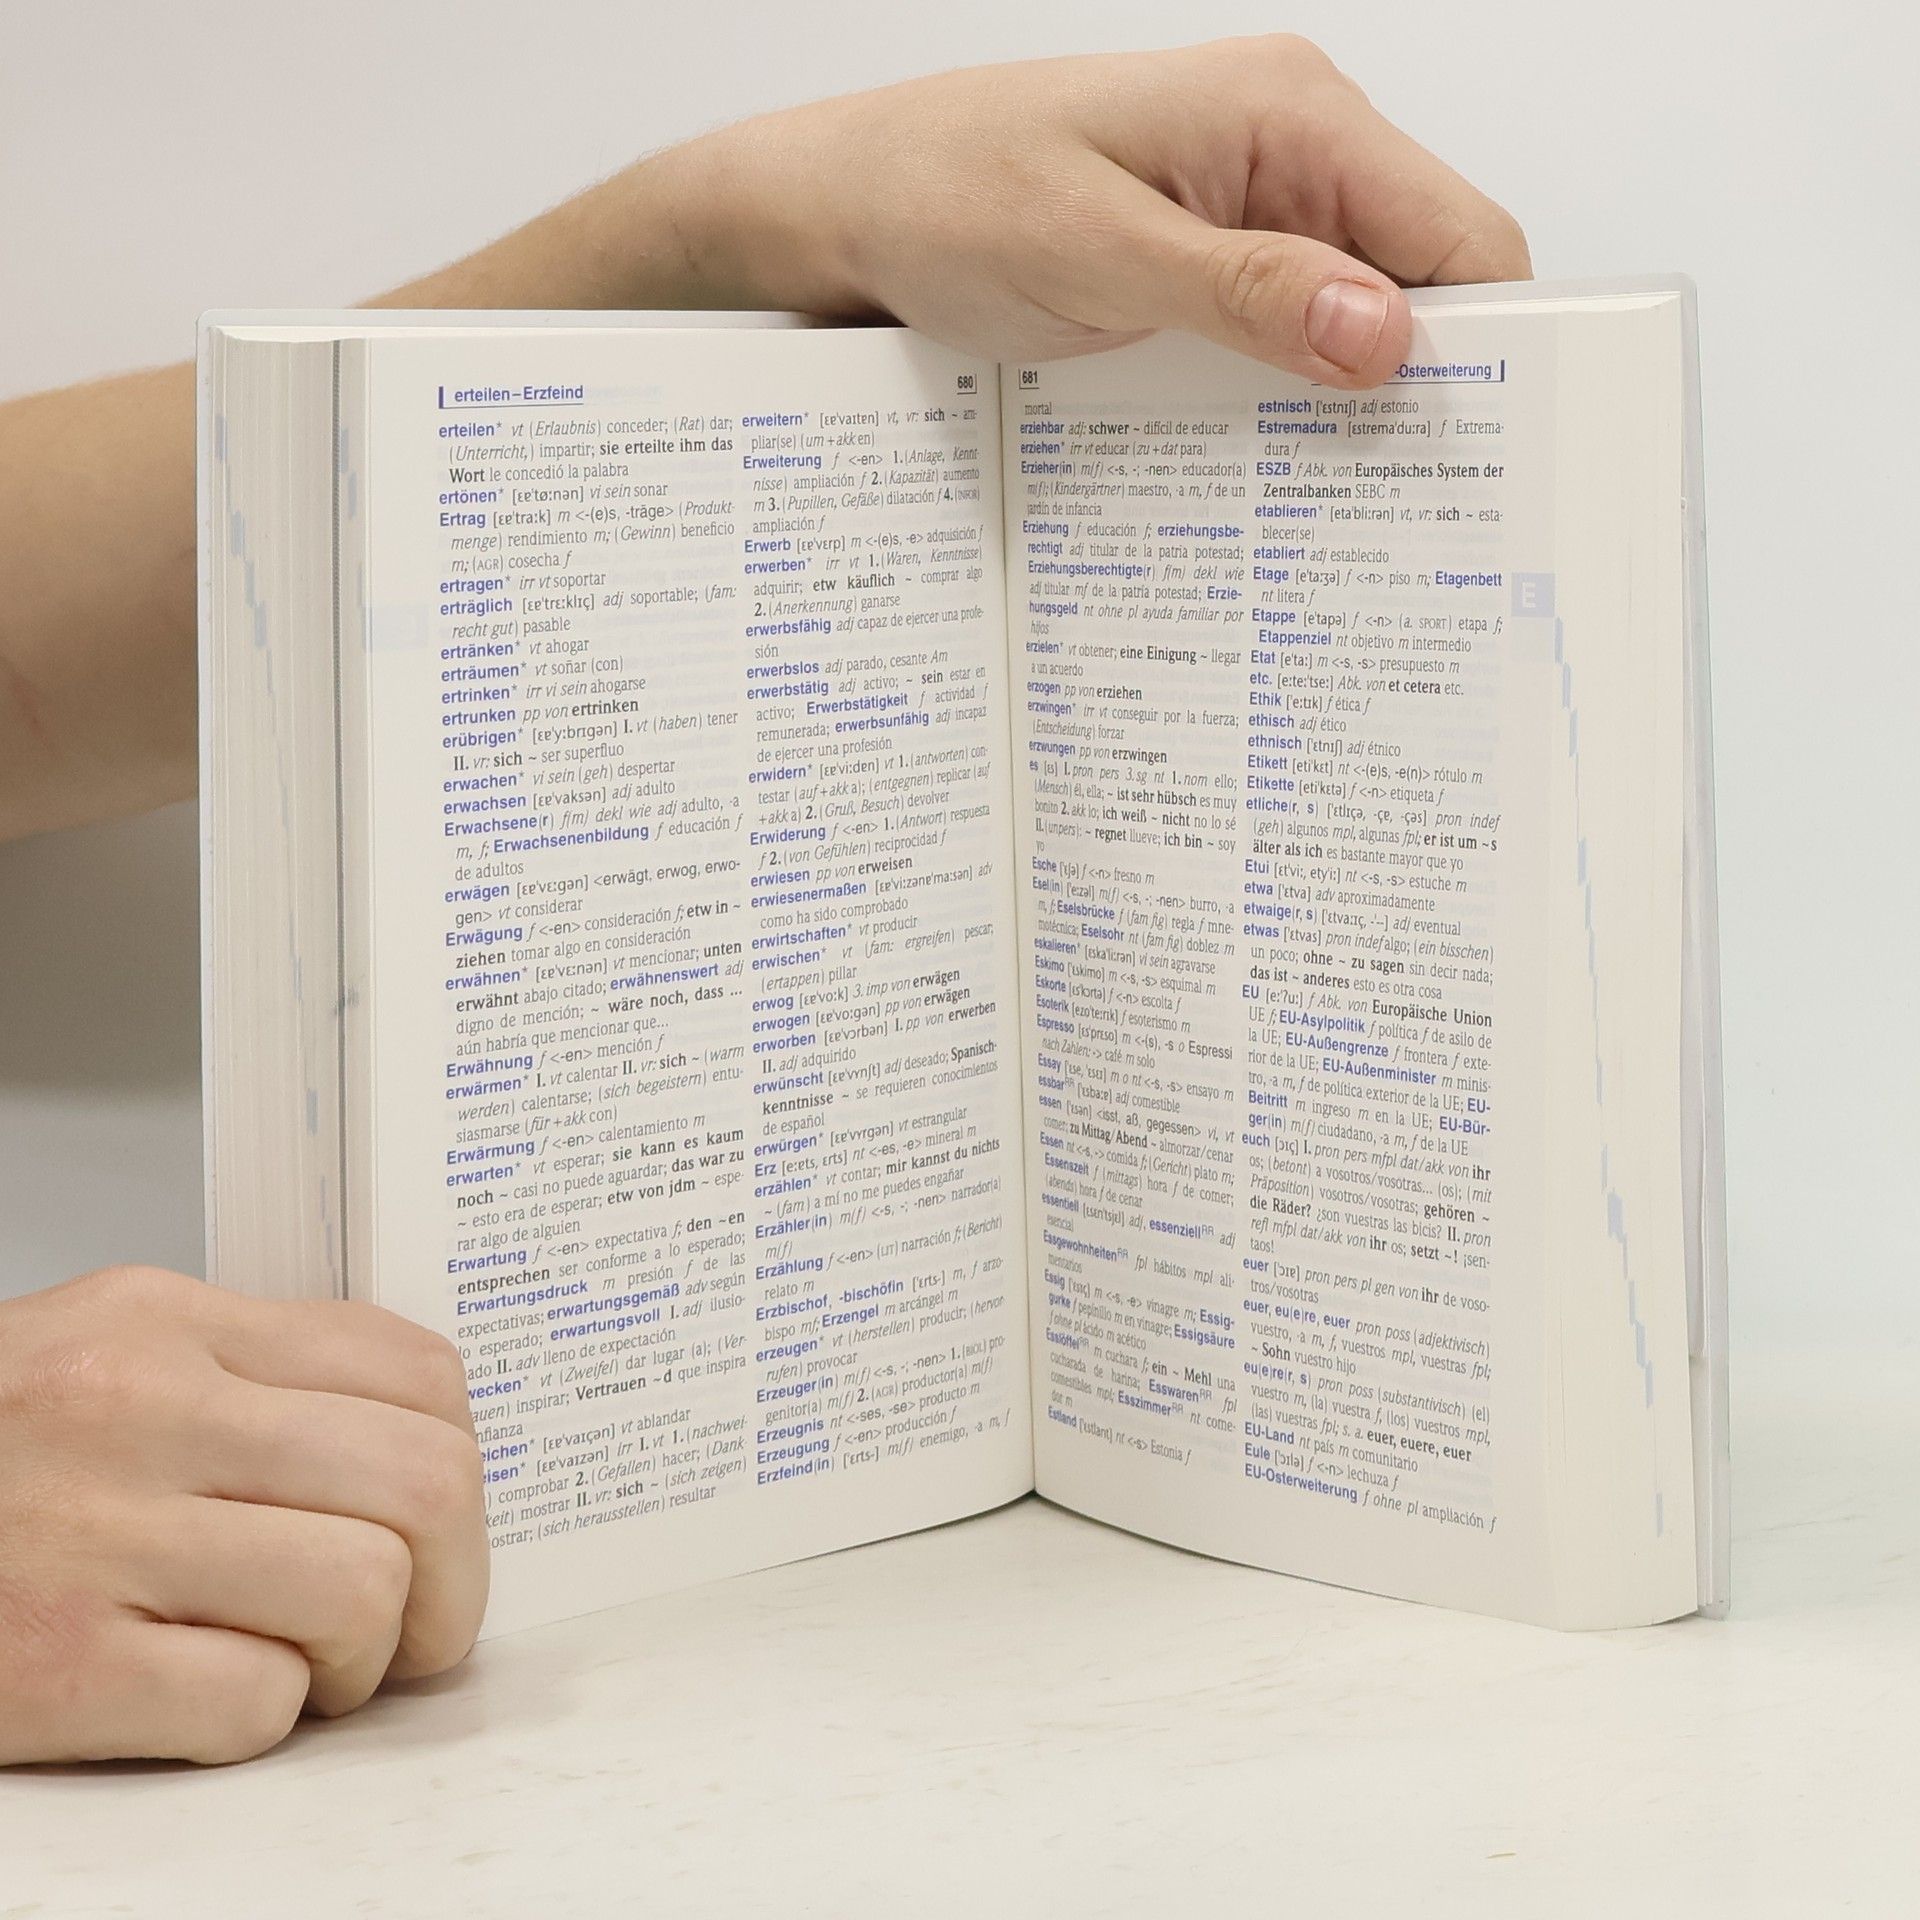 erteilen–Erzfeind
680
erteilen* vt (Erlaubnis) conceder; (Rat) dar;
(Unterricht,) impartir; sie erteilte ihm das
Wort le concedió la palabra
ertönen* [ɛɐ'tø:nən] vi sein sonar
Ertrag [ɛɐ'tra:k] m <-(e)s, -träge> (Produkt-
menge) rendimiento m; (Gewinn) beneficio
m; (AGR) cosecha f
ertragen* irr vt soportar
erträglich [ɛɐ'trɛ:klɪç] adj soportable; (fam:
recht gut) pasable
ertränken* vt ahogar
erträumen* vt soñar (con)
ertrinken* irr vi sein ahogarse
ertrunken pp von ertrinken
erübrigen* [ɛɐ'y:brɪgən] I. vt (haben) tener
II. vr: sich ~ ser superfluo
erwachen* vi sein (geh) despertar
erwachsen [ɛɐ'vaksən] adj adulto
Erwachsene(r) f(m) dekl wie adj adulto, -a
m, f; Erwachsenenbildung f educación f
de adultos
erwägen [ɛɐ'vɛ:gən] <erwägt, erwog, erwo-
gen> vt considerar
Erwägung f <-en> consideración f; etw in ~
ziehen tomar algo en consideración
erwähnen* [ɛɐ'vɛ:nən] vt mencionar; unten
erwähnt abajo citado; erwähnenswert adj
digno de mención; ~ wäre noch, dass ...
aún habría que mencionar que...
Erwähnung f <-en> mención f
erwärmen* I. vt calentar II. vr: sich ~ (warm
werden) calentarse; (sich begeistern) entu-
siasmarse (für +akk con)
Erwärmung f <-en> calentamiento m
erwarten* vt esperar; sie kann es kaum
noch ~ casi no puede aguardar; das war zu
~ esto era de esperar; etw von jdm ~ espe-
rar algo de alguien
Erwartung f <-en> expectativa f; den ~en
entsprechen ser conforme a lo esperado;
Erwartungsdruck m presión f de las
expectativas; erwartungsgemäß adv según
lo esperado; erwartungsvoll I. adj ilusio-
ado II. adv lleno de expectación
wecken* vt (Zweifel) dar lugar (a); (Ver-
auen) inspirar; Vertrauen ~d que inspira
nfianza
eichen* [ɛɐ'vaɪçən] vt ablandar
eisen* [ɛɐ'vaɪzən] irr I. vt 1. (nachwei-
) comprobar 2. (Gefallen) hacer; (Dank-
keit) mostrar II. vr: sich ~ (sich zeigen)
ostrar; (sich herausstellen) resultar
erweitern* [ɛɐ'vaɪtɐn] vt, vr: sich ~ am-
pliar(se) (um +akk en)
Erweiterung f <-en> 1. (Anlage, Kennt-
nisse) ampliación f 2. (Kapazität) aumento
m 3. (Pupillen, Gefäße) dilatación f 4. (INFOR)
ampliación f
Erwerb [ɛɐ'vɛrp] m <-(e)s, -e> adquisición f
erwerben* irr vt 1. (Waren, Kenntnisse)
adquirir; etw käuflich ~ comprar algo
2. (Anerkennung) ganarse
erwerbsfähig adj capaz de ejercer una profe-
sión
erwerbslos adj parado, cesante Am
erwerbstätig adj activo; ~ sein estar en
activo; Erwerbstätigkeit f actividad f
remunerada; erwerbsunfähig adj incapaz
de ejercer una profesión
erwidern* [ɛɐ'vi:dɐn] vt 1. (antworten) con-
testar (auf +akk a); (entgegnen) replicar (auf
+akk a) 2. (Gruß, Besuch) devolver
Erwiderung f <-en> 1. (Antwort) respuesta
f 2. (von Gefühlen) reciprocidad f
erwiesen pp von erweisen
erwiesenermaßen [ɛɐ'vi:zənɐ'ma:sən] adv
como ha sido comprobado
erwirtschaften* vt producir
erwischen* vt (fam: ergreifen) pescar;
(ertappen) pillar
erwog [ɛɐ'vo:k] 3. imp von erwägen
erwogen [ɛɐ'vo:gən] pp von erwägen
erworben [ɛɐ'vɔrbən] I. pp von erwerben
II. adj adquirido
erwünscht [ɛɐ'vʏnʃt] adj deseado; Spanisch-
kenntnisse ~ se requieren conocimientos
de español
erwürgen* [ɛɐ'vʏrgən] vt estrangular
Erz [e:ɐts, ɛrts] nt <-es, -e> mineral m
erzählen* vt contar; mir kannst du nichts
~ (fam) a mí no me puedes engañar
Erzähler(in) m(f) <-s, -; -nen> narrador(a)
m(f)
Erzählung f <-en> (LIT) narración f; (Bericht)
relato m
Erzbischof, -bischöfin ['ɛrts-] m, f arzo-
bispo mf; Erzengel m arcángel m
erzeugen* vt (herstellen) producir; (hervor-
rufen) provocar
Erzeuger(in) m(f) <-s, -; -nen> 1. (BIOL) pro-
genitor(a) m(f) 2. (AGR) productor(a) m(f)
Erzeugnis nt <-ses, -se> producto m
Erzeugung f <-en> producción f
Erzfeind(in) ['ɛrts-] m(f) enemigo, -a m, f
681
-Osterweiterung
mortal
erziehbar adj: schwer ~ difícil de educar
erziehen* irr vt educar (zu +dat para)
Erzieher(in) m(f) <-s, -; -nen> educador(a)
m(f); (Kindergärtner) maestro, -a m, f de un
jardín de infancia
Erziehung f educación f; erziehungsbe-
rechtigt adj titular de la patria potestad;
Erziehungsberechtigte(r) f(m) dekl wie
adj titular mf de la patria potestad; Erzie-
hungsgeld nt ohne pl ayuda familiar por
hijos
erzielen* vt obtener; eine Einigung ~ llegar
a un acuerdo
erzogen pp von erziehen
erzwingen* irr vt conseguir por la fuerza;
(Entscheidung) forzar
erzwungen pp von erzwingen
es [ɛs] I. pron pers 3. sg nt 1. nom ello;
(Mensch) él, ella; ~ ist sehr hübsch es muy
bonito 2. akk lo; ich weiß ~ nicht no lo sé
II. (unpers): ~ regnet llueve; ich bin ~ soy
yo
Esche ['ɛʃə] f <-n> fresno m
Esel(in) ['e:zəl] m(f) <-s, -; -nen> burro, -a
m, f; Eselsbrücke f (fam fig) regla f mne-
motécnica; Eselsohr nt (fam fig) doblez m
eskalieren* [ɛska'li:rən] vi sein agravarse
Eskimo ['ɛskimo] m <-s, -s> esquimal m
Eskorte [ɛs'kɔrtə] f <-n> escolta f
Esoterik [ezo'te:rɪk] f esoterismo m
Espresso [ɛs'prɛso] m <-(s), -s o Espressi
nach Zahlen: -> café m solo
Essay ['ɛse, 'ɛsɛɪ] m o nt <-s, -s> ensayo m
essbarRR ['ɛsba:ɐ] adj comestible
essen ['ɛsən] <isst, aß, gegessen> vi, vt
comer; zu Mittag/Abend ~ almorzar/cenar
Essen nt <-s, -> comida f; (Gericht) plato m;
Essenszeit f (mittags) hora f de comer;
(abends) hora f de cenar
essentiell [ɛsɛn'tsjɛl] adj, essenziellRR adj
esencial
EssgewohnheitenRR fpl hábitos mpl ali-
mentarios
Essig ['ɛsɪç] m <-s, -e> vinagre m; Essig-
gurke f pepinillo m en vinagre; Essigsäure
f ohne pl ácido m acético
EsslöffelRR m cuchara f; ein ~ Mehl una
cucharada de harina; EsswarenRR fpl
comestibles mpl; EsszimmerRR nt come-
dor m
Estland ['ɛstlant] nt <-s> Estonia f
estnisch ['ɛstnɪʃ] adj estonio
Estremadura [ɛstrema'du:ra] f Extrema-
dura f
ESZB f Abk. von Europäisches System der
Zentralbanken SEBC m
etablieren* [eta'bli:rən] vt, vr: sich ~ esta-
blecer(se)
etabliert adj establecido
Etage [e'ta:ʒə] f <-n> piso m; Etagenbett
nt litera f
Etappe [e'tapə] f <-n> (a. SPORT) etapa f;
Etappenziel nt objetivo m intermedio
Etat [e'ta:] m <-s, -s> presupuesto m
etc. [e:te:'tse:] Abk. von et cetera etc.
Ethik ['e:tɪk] f ética f
ethisch adj ético
ethnisch ['ɛtnɪʃ] adj étnico
Etikett [eti'kɛt] nt <-(e)s, -e(n)> rótulo m
Etikette [eti'kɛtə] f <-n> etiqueta f
etliche(r, s) ['ɛtlɪçə, -çɐ, -çəs] pron indef
(geh) algunos mpl, algunas fpl; er ist um ~s
älter als ich es bastante mayor que yo
Etui [ɛt'vi:, ety'i:] nt <-s, -s> estuche m
etwa ['ɛtva] adv aproximadamente
etwaige(r, s) ['ɛtvaɪç, -'--] adj eventual
etwas ['ɛtvas] pron indef algo; (ein bisschen)
un poco; ohne ~ zu sagen sin decir nada;
das ist ~ anderes esto es otra cosa
EU [e:'ʔu:] f Abk. von Europäische Union
UE f; EU-Asylpolitik f política f de asilo de
la UE; EU-Außengrenze f frontera f exte-
rior de la UE; EU-Außenminister m minis-
tro, -a m, f de política exterior de la UE; EU-
Beitritt m ingreso m en la UE; EU-Bür-
ger(in) m(f) ciudadano, -a m, f de la UE
euch [ɔɪç] I. pron pers mfpl dat/akk von ihr
os; (betont) a vosotros/vosotras... (os); (mit
Präposition) vosotros/vosotras; gehören ~
die Räder? ¿son vuestras las bicis? II. pron
refl mfpl dat/akk von ihr os; setzt ~! ¡sen-
taos!
euer ['ɔɪɐ] pron pers pl gen von ihr de voso-
tros/vosotras
euer, eu(e)re, euer pron poss (adjektivisch)
vuestro, -a m, f, vuestros mpl, vuestras fpl;
~ Sohn vuestro hijo
eu(e)re(r, s) pron poss (substantivisch) (el)
vuestro m, (la) vuestra f, (los) vuestros mpl,
(las) vuestras fpl; s. a. euer, euere, euer
EU-Land nt país m comunitario
Eule ['ɔɪlə] f <-n> lechuza f
EU-Osterweiterung f ohne pl ampliación f
E